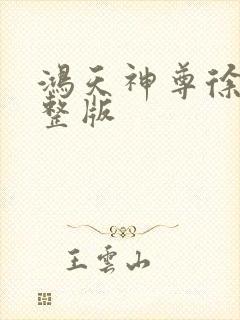 鴻天神尊徐
整版
王雲山